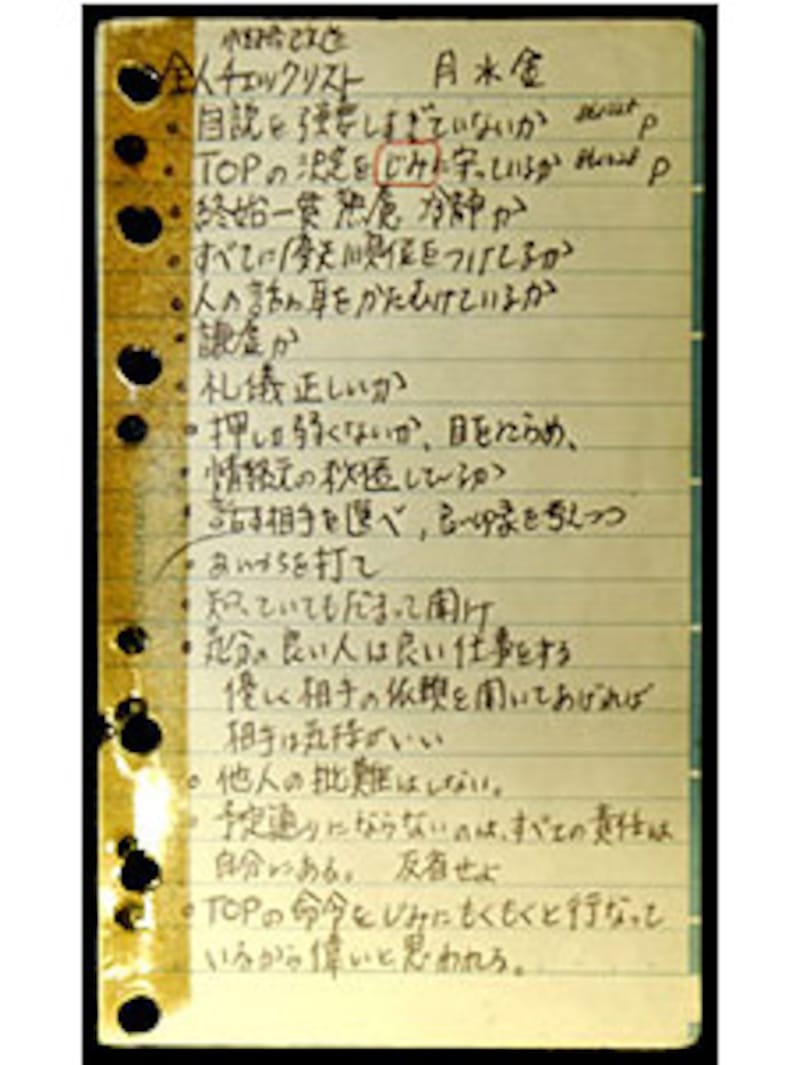 全人チェックリスト 月 水 金
・自説を強要しすぎていないか P
・TOPの決定をじみに守っているか P
・終始一貫 熟慮 冷静か
・すべてに優先順位をつけてるか
・人の話に耳をかたむけているか
・謙虚か
・礼儀正しいか
・押しは弱くないか、目をにらめ、
・情報元の秘匿しているか
・話す相手を選べ,良い印象を与えつつ
・あいづちを打て
・知っていてもだまって聞け
・気分の良い人は良い仕事をする
優しく相手の依頼を聞いてあげれば
相手は気持がいい
・他人の批難はしない。
・予定通りにならないのは、すべての責任は
自分にある。 反省せよ
・TOPの命令をじみにもくもくと行なって
いるから偉いと思われる。